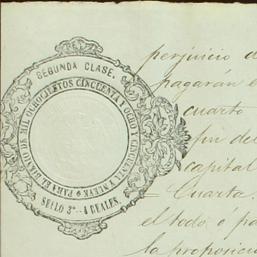 SEGUNDA CLASE,
PARA EL BIENIO DE MIL OCHOCIENTOS CINCUENTA Y OCHO Y CINCUENTA Y NUEVE
SELLO 3º. - 4 REALES.
perjuicio d
pagarán e
cuarto
fin del
capital
Cuarta.
el todo, ó pa
la proposici